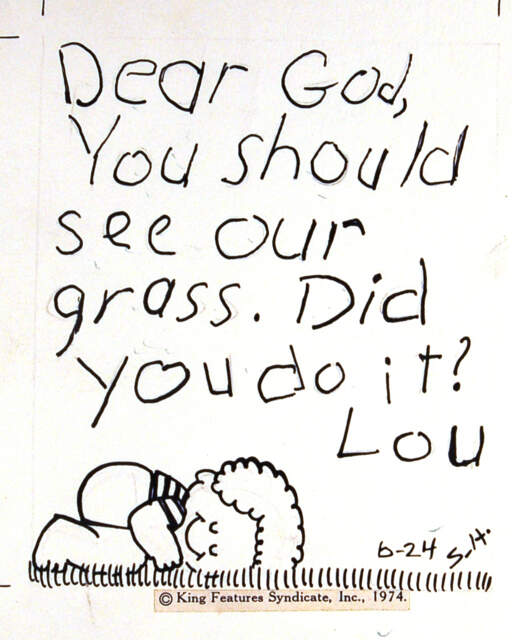 Dear God,
You should
see our
grass. Did
you do it?
Lou
6-24
© King Features Syndicate, Inc., 1974.